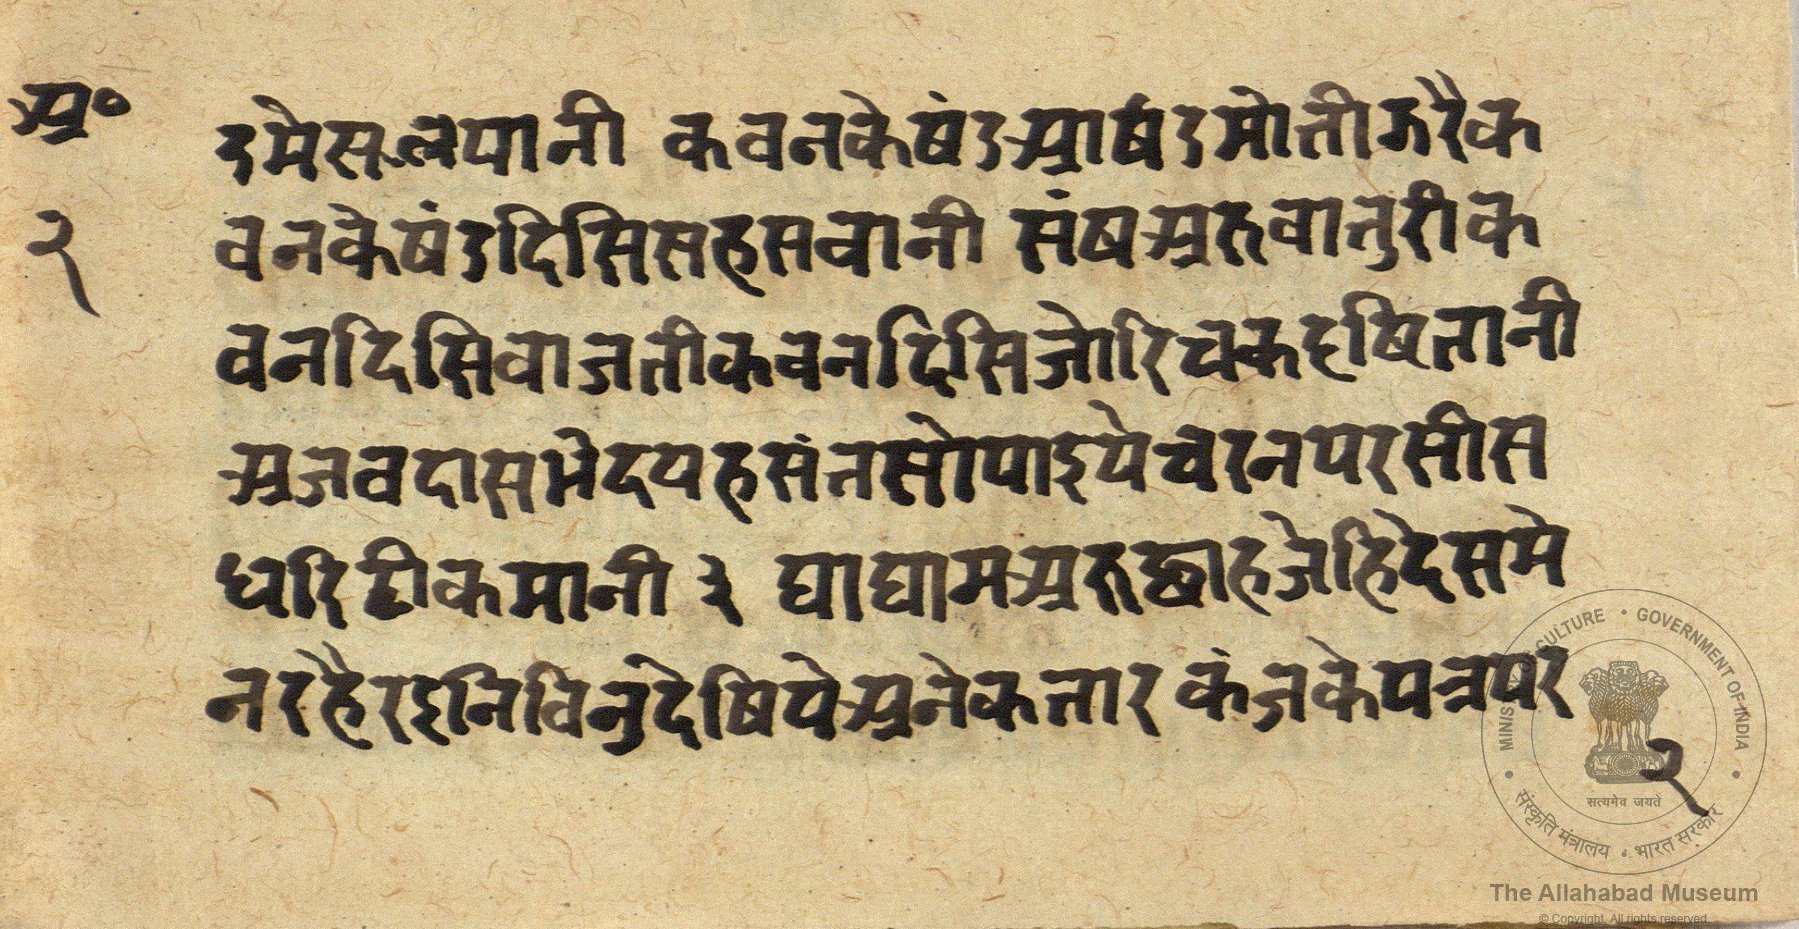 अ॰
डमेसलपानी कवनकेषंडअाषंडमोतीझरैक
२
वनकेषंडदिसिसहसवानी संषअरुवातुरीक
वनदिसिवाजतीकवनदिसिजोरिचकदृषितानी
अजवदासभेदयहसंतसोपाइयेचरनपरसीस
धरिटीकमानी ३ घाघामअरुछाहजेहिदेसमे
नरहैरइनिविनुदेषियेअनेकतार कंजकेपत्रपर
२
MINISTRY OF CULTURE • GOVERNMENT OF INDIA
सत्यमेव जयते
संस्कृति मंत्रालय • भारत सरकार
The Allahabad Museum
© Copyright. All rights reserved